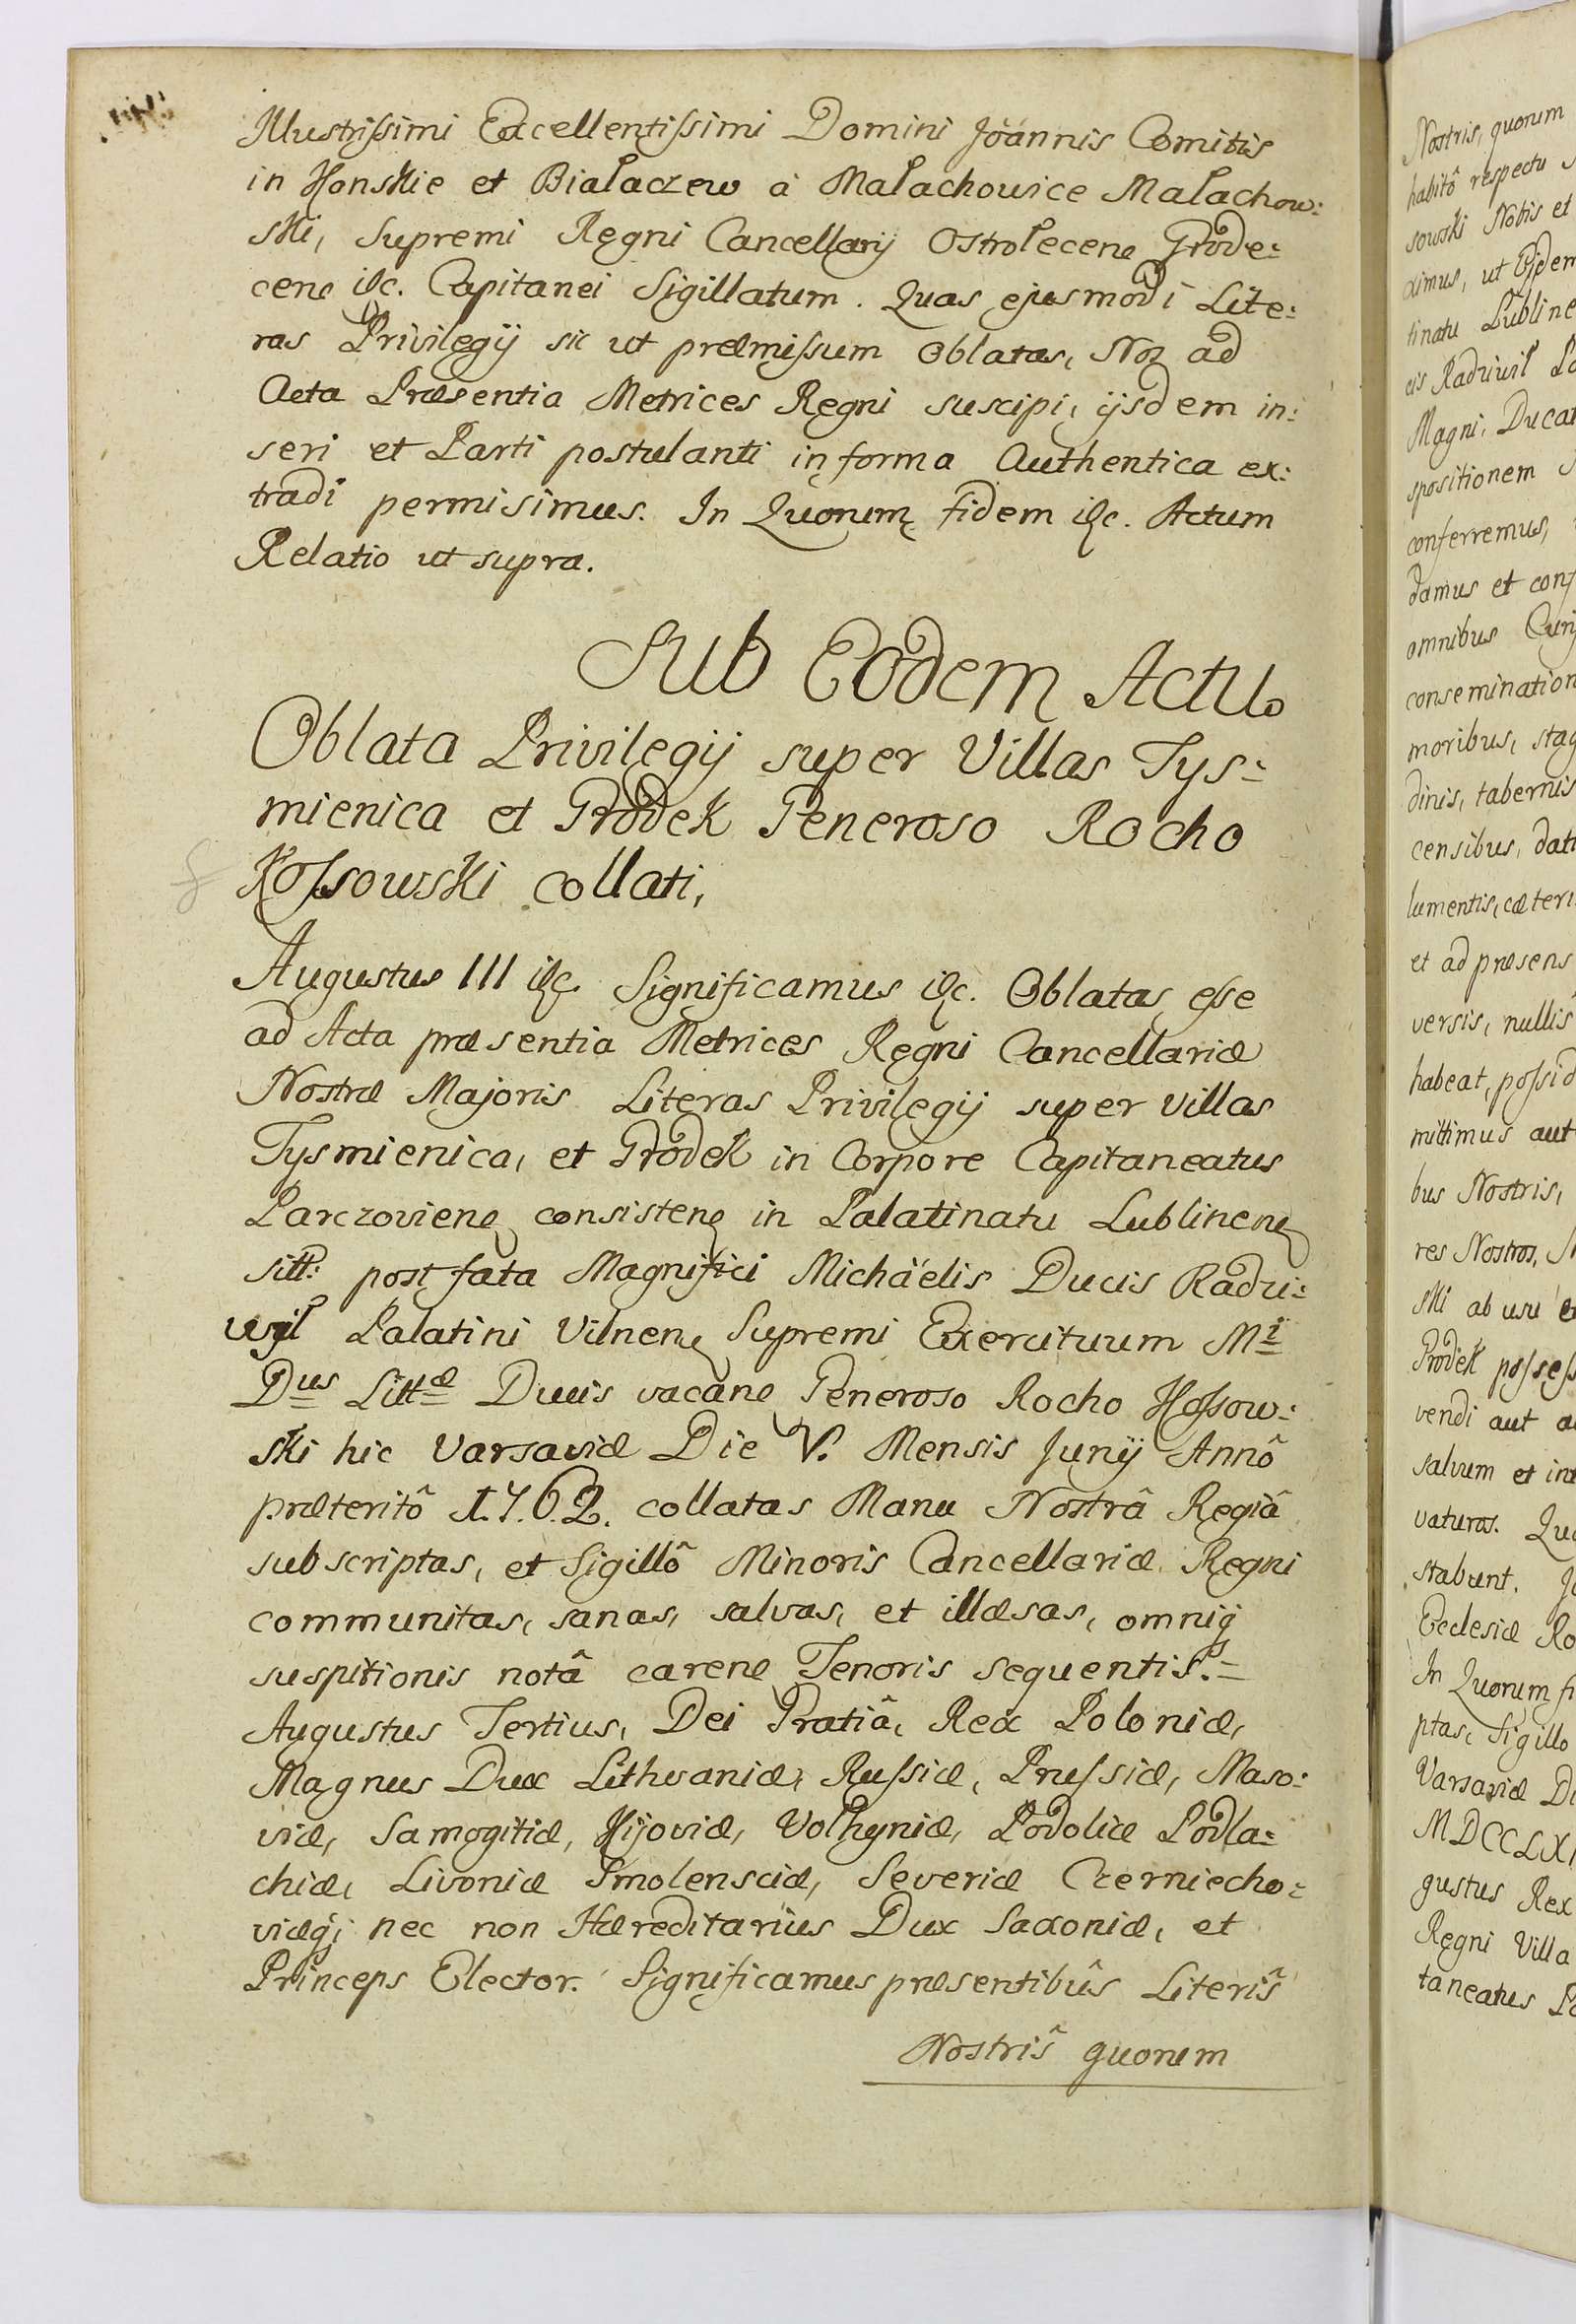 Illustrissimi Excellentissimi Domini Joannis Comitis
in Honskie et Białaczew à Małachowice Małachow:
ski, Supremi Regni Cancellarij Ostrołecene Grode:
cene &c. Capitanei Sigillatum. Quas ejusmodi Lite:
ras Privilegij sic ut præmissum Oblatas, Nos ad
Acta Præsentia Metrices Regni suscipi, ijsdem in:
seri et Parti postulanti in forma Authentica ex:
tradi permisimus. In Quorum fidem &c. Actum
Relatio ut supra.
Sub Eodem Actu
Oblata Privilegij super Villas Tys:
mienica et Grodek Generoso Rocho
Kossowski collati,
Augustus III &c. Significamus &c. Oblatas esse
ad Acta præsentia Metrices Regni Cancellariæ
Nostræ Majoris Literas Privilegij super villas
Tysmienica, et Grodek in Corpore Capitaneatus
Parczoviene consistene in Palatinatu Lublinene
sitt: post fata Magnifici Michäelis Ducis Radzi:
wył Palatini Vilnene Supremi Exercituum Mi
Dus Littæ Ducis vacane Generoso Rocho Kossow:
ski hic Varsaviæ Die V. Mensis Junij Annô
præteritô 1.7.6.2. collatas Manu Nostrâ Regiâ
subscriptas, et Sigillô Minoris Cancellariæ Regni
communitas, sanas, salvas, et illæsas, omniq
suspitionis notâ carene Tenoris sequentis.=
Augustus Tertius, Dei Gratiâ, Rex Poloniæ,
Magnus Dux Lithvaniæ, Russiæ, Prussiæ, Maso:
viæ, Samogitiæ, Kijoviæ, Volhyniæ, Podoliæ Podla:
chiæ, Livoniæ Smolensciæ, Severiæ Czerniecho:
viæq; nec non Hæreditarius Dux Saxoniæ, et
Princeps Elector. Significamus præsentibûs Literîs
Nostrîs quorum
Nostris, quorum
habitô respectu
sowski Nobis et
ximus, ut Ejdem
tinatu Lubline
cis Radziwił
Magni Ducat
spositionem
conferremus,
damus et conf
omnibus
consemination
moribus, stag
dinis, tabernis
censibus, dati
lumentis, cæteri
et ad præsens
versis, nullis
habeat, possid
mittimus aut
bus Nostris,
res Nostros,
ski ab usu
Grodek possess
vendi aut
salvum et
vaturos.
stabunt.
Ecclesiæ Ro
In Quorum fi
ptas, Sigillo
Varsaviæ Di
MDCCLX
gustus Rex
Regni Villa
taneatus